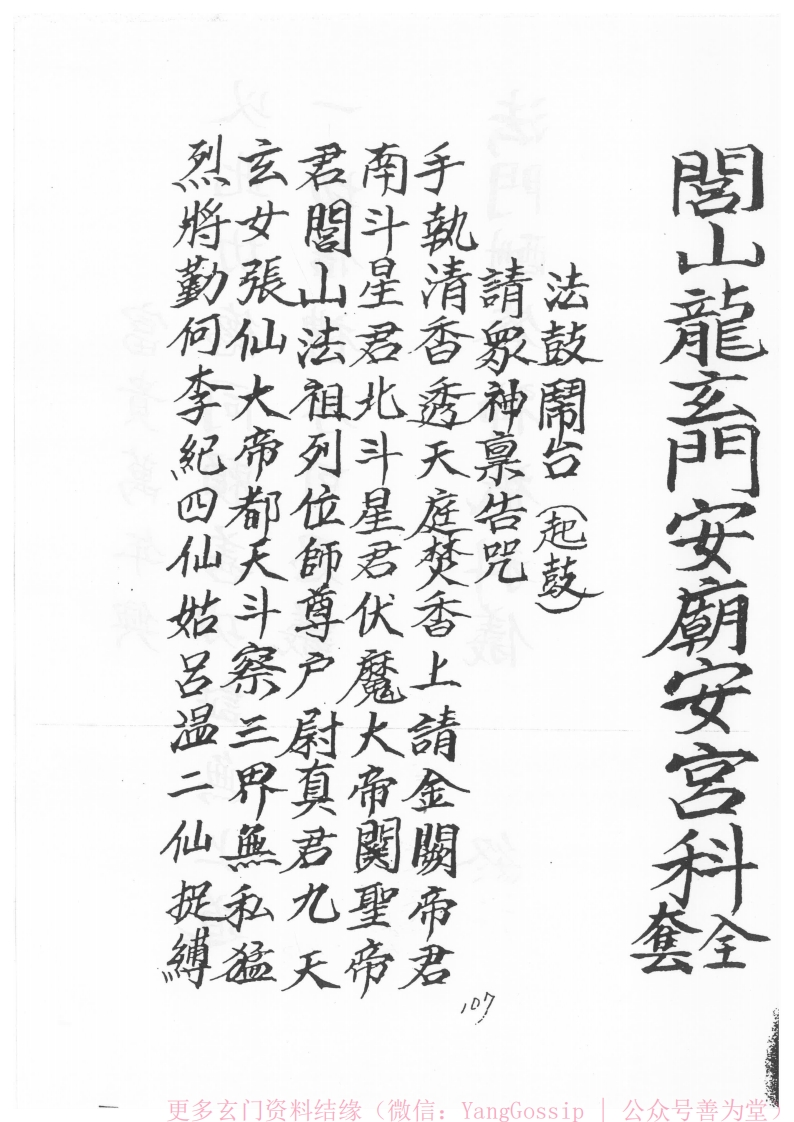 閭山龍玄門安廟安宮科全套
法鼓鬧台（起鼓）
請眾神禀告咒
手執清香透天庭焚香上請金闕帝君
南斗星君北斗星君伏魔大帝関聖帝
君閭山法祖列位師尊户尉真君九天
玄女張仙大帝都天斗察三界無私猛
烈將勤何李紀四仙姑呂温二仙捉縛
107
更多玄门资料结缘（微信：YangGossip | 公众号善为堂）